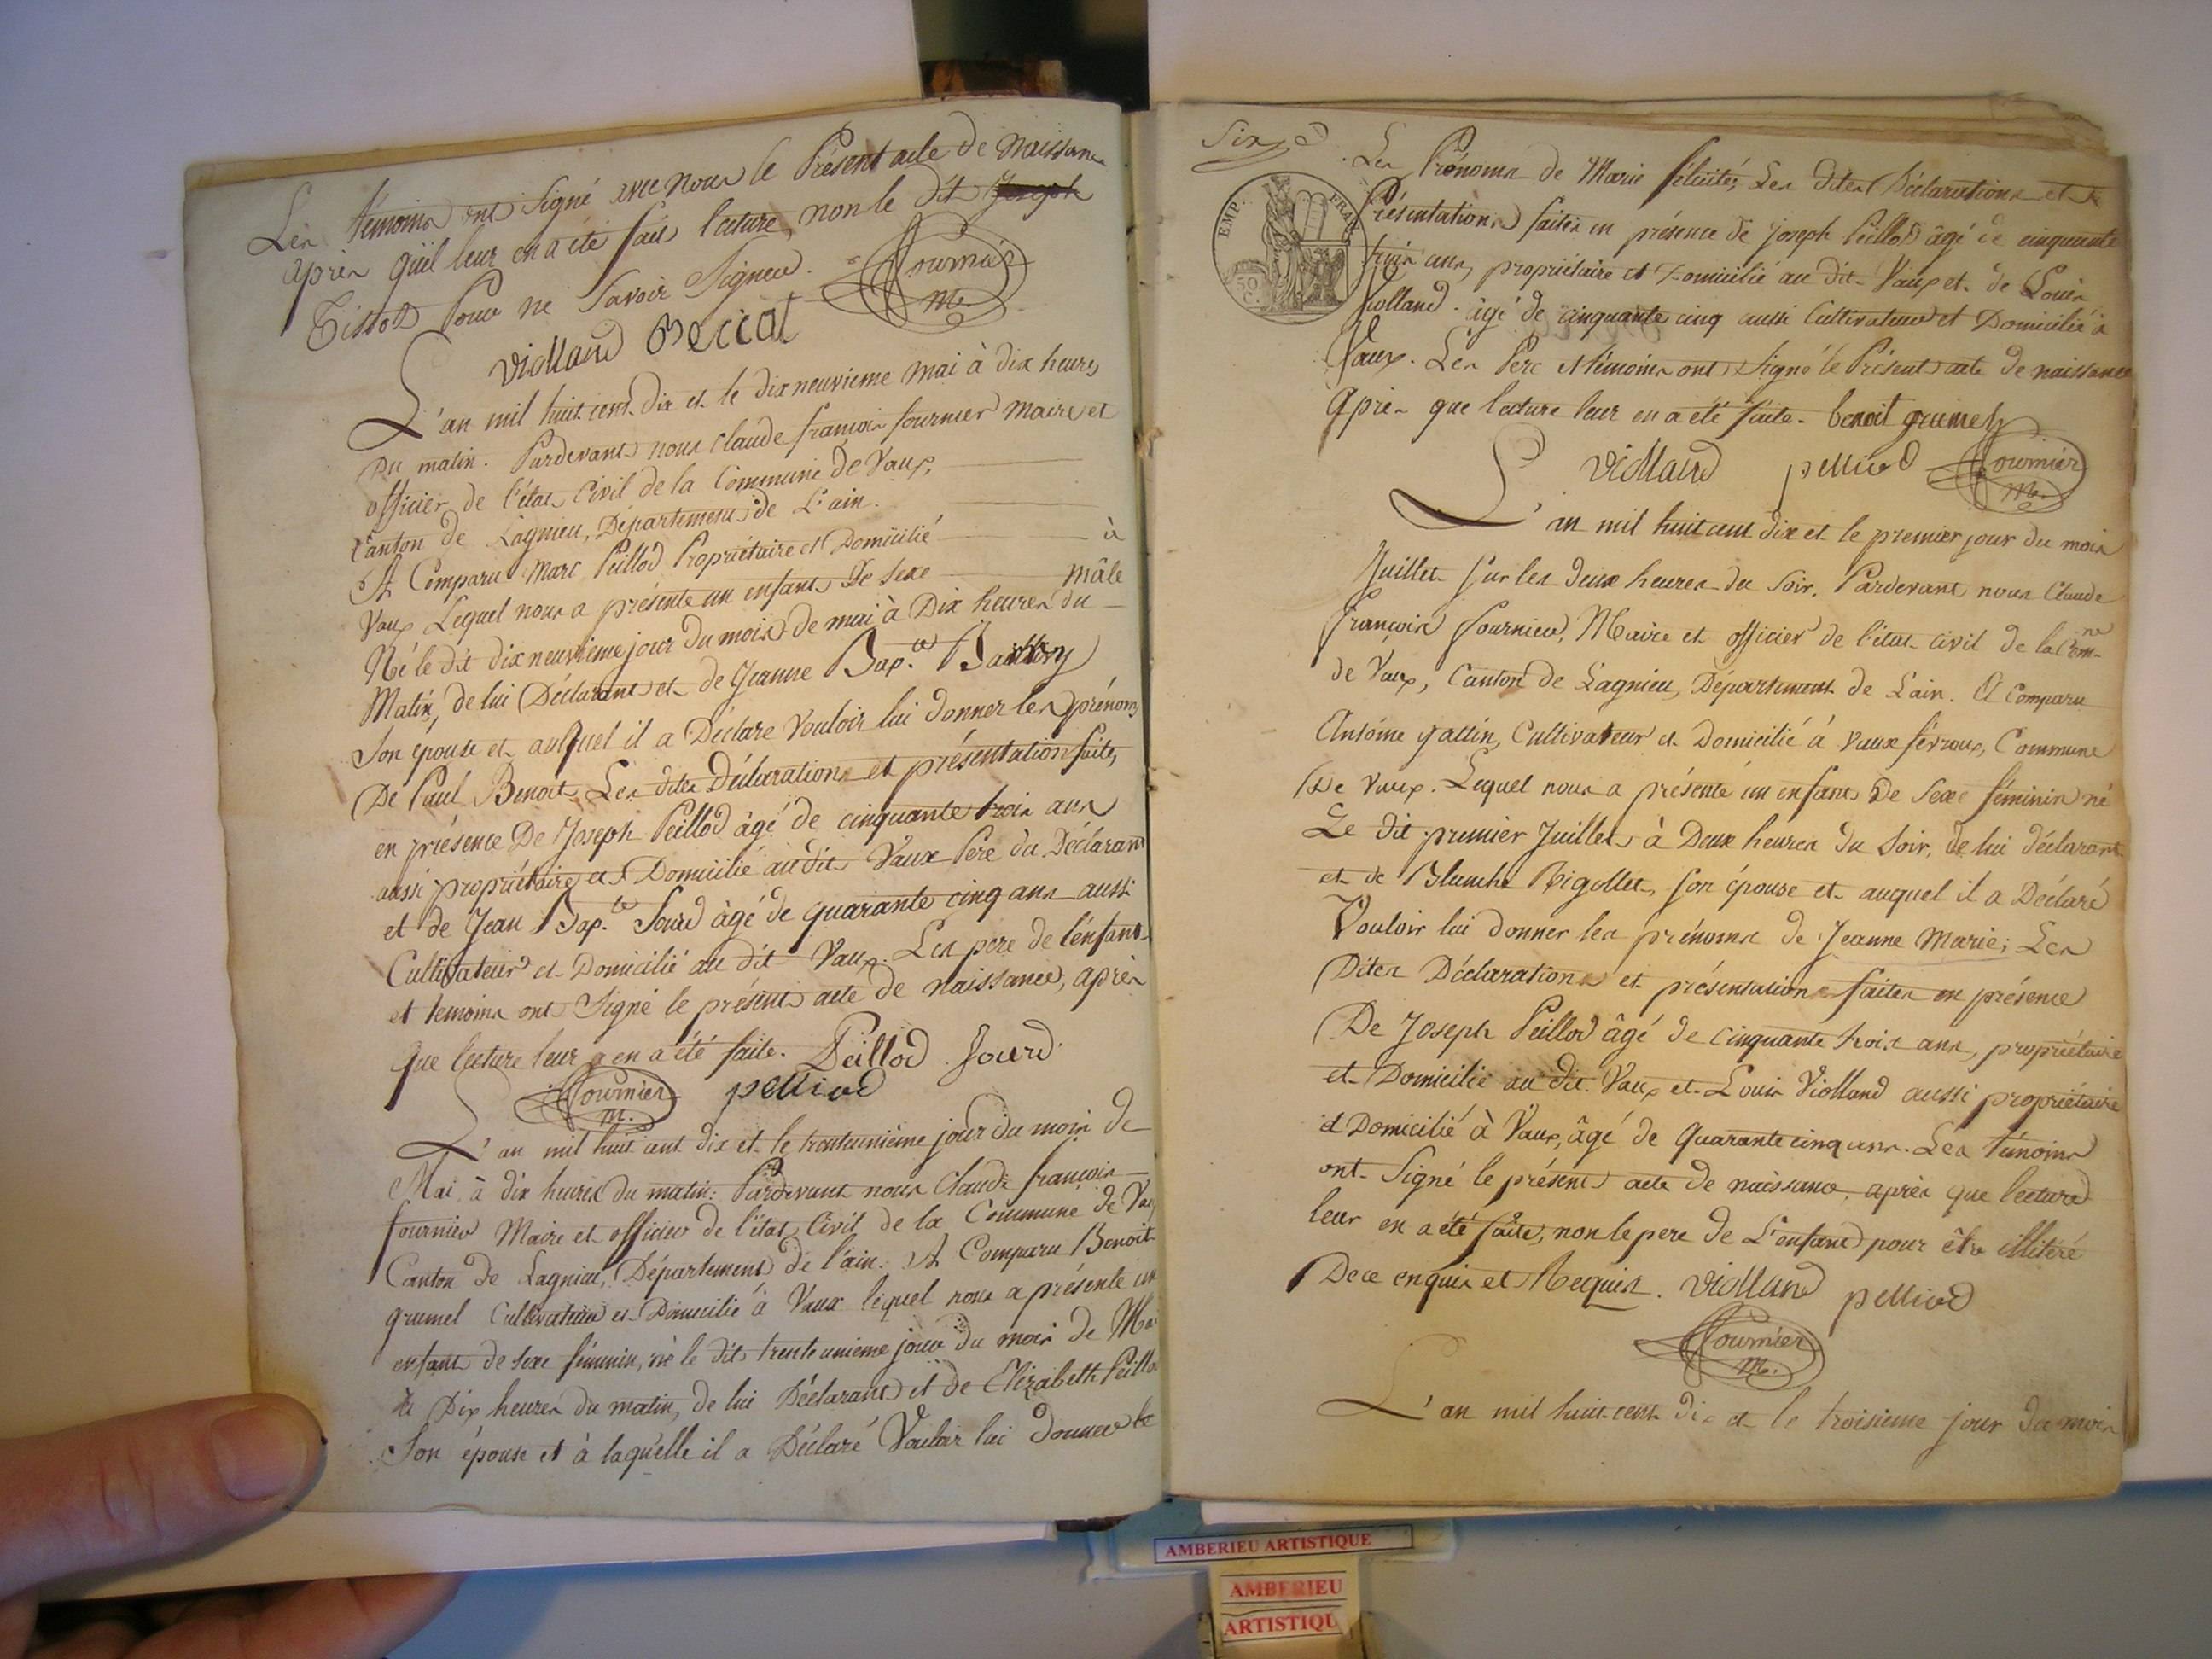 Les témoins ont Signé avec nous le Présent acte de naissance
après qu'il leur en a été fait lecture, non le dit Joseph
Tissot Pour ne Savoir Signer. Fournier
M.
violland
L'an mil huit cent dix et le dix neuvieme mai à dix heures
Du matin. Pardevant nous Claude françois fournier Maire et
officier de l'état Civil de la Commune de Vaux,
Canton de Lagnieu, Département de L'ain.
A Comparu Marc Peillod Propriétaire et Domicilié à
Vaux Lequel nous a présenté un enfant De Sexe mâle
Né le dit dix neuvieme jour du mois de mai à Dix heures du
Matin, de lui Déclarant et de Jeanne Bap.te
Son épouse et auquel il a Déclaré Vouloir lui donner les prénoms
De Paul Benoit Les dites Déclarations et présentation faites
en présence De Joseph Peillod âgé de cinquante trois ans
aussi propriétaire et Domicilié au dit Vaux Pere du Déclarant
et de Jean Bap.te Jourd âgé de quarante cinq ans aussi
Cultivateur et Domicilié au dit Vaux. Les pere de l'enfant
et temoins ont Signé le présent acte de naissance, après
que lecture leur en a été faite. Peillod Jourd
Fournier pelliod
M.
L'an mil huit cent dix et le trente unième jour du mois de
Mai à dix heures du matin: Pardevant nous Claude françois
fournier Maire et officier de l'état Civil de la Commune de Vaux
Canton de Lagnieu, Département de l'ain. A Comparu Benoit
grumel Cultivateur et Domicilié à Vaux lequel nous a présenté un
enfant de sexe féminin, né le dit trente unieme jour du mois de Mai
à Dix heures du matin, de lui Déclarant et de Elizabeth Peillod
Son épouse et à laquelle il a Déclaré Vouloir lui Donner le
Six
EMP. FRAN
50 C.
Les Prénoms de Marie félicité; Les dites Déclarations et
Présentations faites en présence de Joseph Peillod âgé de cinquante
trois ans, propriétaire et Domicilié au dit Vaux et de Louis
Violland âgé de cinquante cinq aussi Cultivateur et Domicilié à
Vaux. Les Pere et témoins ont Signé le Présent acte de naissance
après que lecture leur en a été faite. benoit grumel
violland pelliod Fournier
M.
L'an mil huit cent dix et le premier jour du mois
Juillet Sur les deux heures du Soir. Pardevant nous Claude
françois fournier, Maire et officier de l'état civil de la Com.ne
de Vaux, Canton de Lagnieu, Département de L'ain. A Comparu
Antoine gallin, Cultivateur et Domicilié à Vaux févroux, Commune
De Vaux. Lequel nous a présenté un enfant De Sexe féminin né
Le dit premier Juillet à Deux heures du Soir, de lui déclarant
et de Blanche Rigollet, son épouse et auquel il a Déclaré
Vouloir lui donner les prénoms de Jeanne Marie; Les
Dites Déclarations et présentations faites en présence
De Joseph Peillod âgé de cinquante trois ans, propriétaire
et Domicilié au dit Vaux et Louis Violland aussi propriétaire
et Domicilié à Vaux, âgé de Quarante cinq ans. Les témoins
ont Signé le présent acte de naissance, après que lecture
leur en a été faite, non le pere de L'enfant pour être illitéré
De ce enquis et Requis. violland pelliod
Fournier
M.
L'an mil huit cent dix et le troisieme jour du mois
AMBERIEU ARTISTIQUE
AMBERIEU
ARTISTIQU